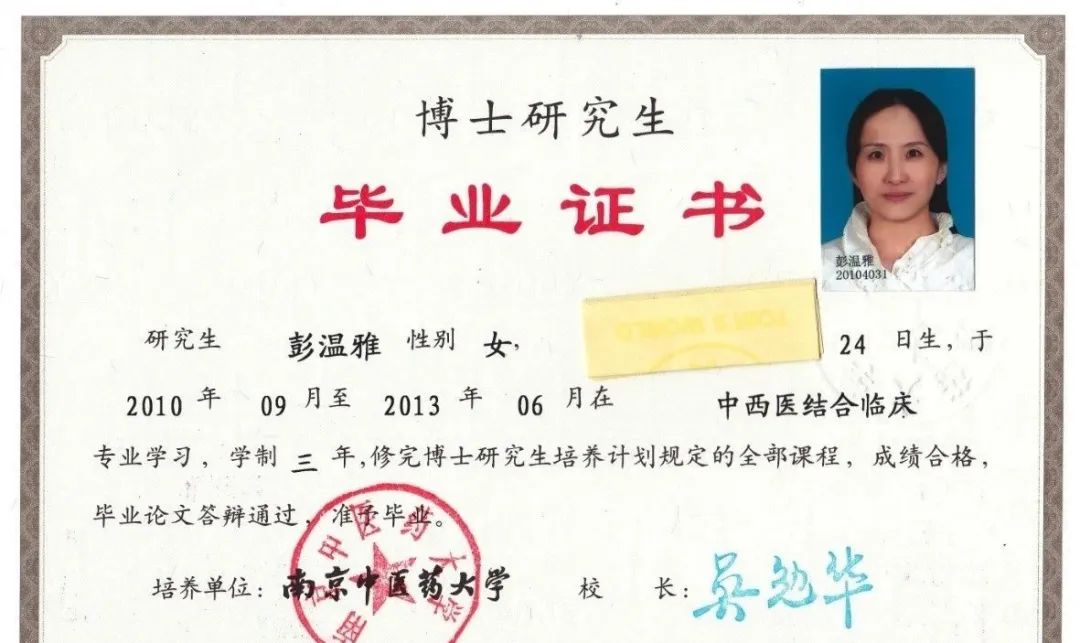 博士研究生
毕业证书
彭温雅
20104031
研究生 彭温雅 性别 女, 24 日生, 于
2010 年 09 月至 2013 年 06 月在 中西医结合临床
专业学习, 学制 三 年, 修完博士研究生培养计划规定的全部课程, 成绩合格,
毕业论文答辩通过, 准予毕业。
培养单位: 南京中医药大学 校 长: 吴勉华
南京中医药大学